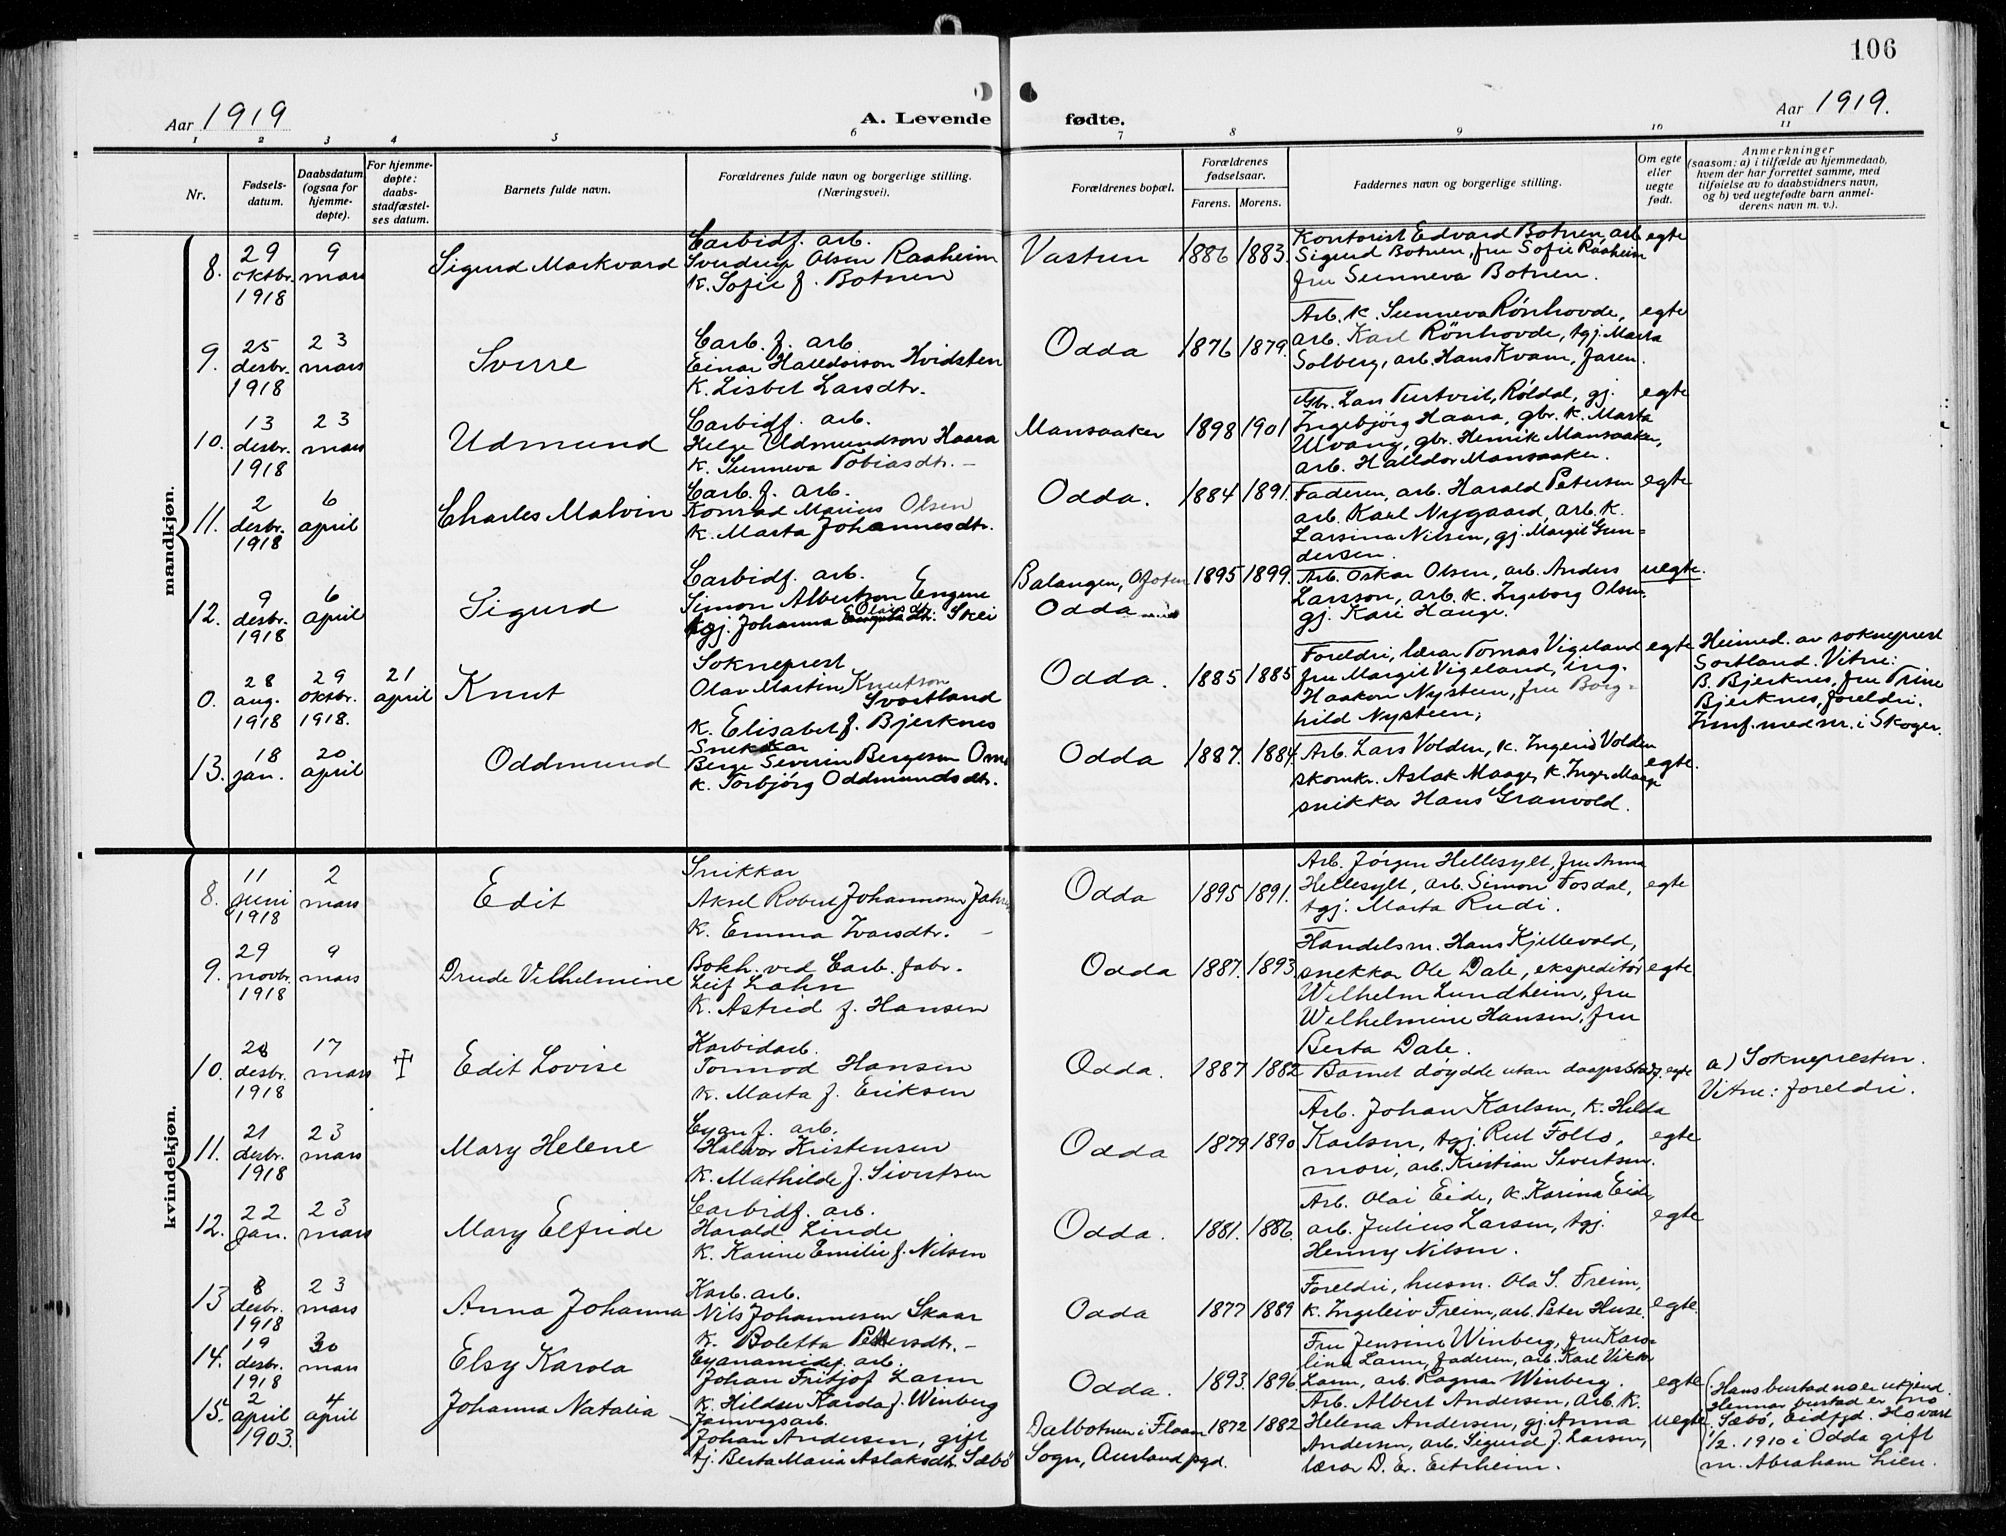 106
Aar 1919
A. Levende
fødte.
Aar 1919.
1 2 3 4 5 6 7 8 9 10 11
Nr.
Fødsels-
datum.
Daabsdatum
(ogsaa for
hjemme-
døpte).
For hjemme-
døpte:
daabs-
stadfæstel-
ses datum.
Barnets fulde navn.
Forældrenes fulde navn og borgerlige stilling.
(Næringsvei).
Forældrenes bopæl.
Forældrenes
fødselsaar.
Farens. Morens.
Faddernes navn og borgerlige stilling.
Om egte
eller
uegte
født.
Anmerkninger
(saasom: a) i tilfælde av hjemmedaab,
hvem der har forrettet samme, med
tilføielse av to daabsvidners navn,
og b) ved uegtefødte barn anmel-
derens navn m. v.).
mandkjøn.
8.
29
oktbr.
1918
9
mars
Sigurd Markvard
Carbidf. arb.
Sverdrup Olsen Raaheim
K. Sofie f. Botnen
Vastun
1886 1883.
Kontorist Edvard Botnen, arb
Sigurd Botnen, fru Sofie Raaheim
fru Sunneva Botnen.
egte
9.
25
desbr.
1918
23
mars
Sverre
Carb. f. arb.
Einar Halldorson Hvidsten
K. Lisbet Larsdtr.
Odda
1876 1879.
Arb. K. Sunneva Rönhovde,
arb. Karl Rönhovde, tgj. Marta
Solberg, arb. Hans Kvam, faren.
egte
10.
13
desbr.
1918
23
mars
Udmund
Carbidf. arb.
Helge Udmundson Haara
K. Sunneva Tobiasdtr. –
Mansaaker
1898 1901
Gbr. Lars Tustveit, Röldal, gj.
Ingebjörg Haara, gbr. K. Marta
Ulvang, gbr. Henrik Mansaaker,
arb. Halldor Mansaaker.
egte
11.
2
desbr.
1918
6
april
Charles Malvin
Carb. f. arb.
Konrad Marius Olsen
K. Marta Johannesdtr.
Odda.
1884 1891.
Faderen, arb. Harald Petersen
arb. Karl Nygaard, arb. K.
Larsina Nilsen, gj. Margit Gun-
dersen.
egte
12.
9
desbr.
1918
6
april
Sigurd
Carbidf. arb.
Simon Albertson Engene
tgj. Johanna Olaisdtr. Skei
Balangen, Ofoten
Odda
1895 1899.
Arb. Oskar Olsen, arb. Anders
Larsson, arb. K. Ingeborg Olsen,
gj. Kari Hauge.
uegte.
0.
28
aug.
1918
29
oktbr.
1918.
21
april
Knut
Sokneprest
Olav Martin Knutson
Svortland
K. Elisabet f. Bjerknes
Odda.
1885 1885
Foreldri, lærar Tomas Vigeland
fru Margit Vigeland, ing.
Haakon Nysteen, fru Borg-
hild Nysteen;
egte
Heimed. av sokneprest
Sortland. Vitne:
B. Bjerknes, fru Trine
Bjerknes, foreldri.
Innf. med nr. i Skoger.
13.
18
jan.
20
april
Oddmund
Snekkar
Berge Severin Bergesen Ome
K. Torbjörg Oddmundsdtr.
Odda
1887. 1884
Arb. Lars Volden, K. Ingerid Volden
skomkr. Aslak Maage, K. Inger Maage
snikkar Hans Granvold.
egte.
kvindekjøn.
8.
11
juni
1918
2
mars
Edit
Snikkar
Aksel Robert Johannesen Jahn
K. Emma Ivarsdtr. –
Odda
1895 1891.
Arb. Jörgen Hellesylt, fru Anna
Hellesylt, arb. Simon Fosdal,
tgj. Marta Rudi.
egte
9.
29
novbr.
1918
9
mars
Drude Vilhelmine
Bokh. ved Carb. fabr.
Leif Lahn
K. Astrid f. Hansen
Odda
1887. 1893
Handelsm. Hans Kjellevold,
snekkar Ole Dale, ekspeditör
Wilhelm Lundheim, fru
Wilhelmine Hansen, fru
Berta Dale.
egte
10.
28
desbr.
1918
17
mars
Edit Lovise
Karbidarb.
Tormod Hansen
K. Marta f. Eriksen
Odda.
1887 1882
Barnet döydde utan daapsstadf.
egte
a) Soknepresten.
Vitne: foreldri.
11.
21
desbr.
1918
23
mars
Mary Helene
Cyan f. arb.
Halvor Kristensen
K. Mathilde f. Sivertsen
Odda
1879 1890
Arb. Johan Karlsen, K. Hilda
Karlsen, tgj. Rut Follo,
mori, arb. Kristian Sivertsen.
egte
12.
22
jan.
23
mars
Mary Elfride
Carbidf. arb.
Harald Linde
K. Karine Emilie f. Nilsen
Odda.
1881. 1886.
Arb. Olai Eide, K. Karina Eide,
arb. Julius Larsen, tgj.
Henny Nilsen.
egte
13
8
desbr.
1918
23
mars
Anna Johanna
Karb. arb.
Nils Johannesen Skaar
K. Boletta Pettersdtr. –
Odda
1877 1889
Foreldri, husm. Ola S. Freim,
K. Ingeleiv Freim, arb. Peter Huse.
egte.
14.
19
desbr.
1918
30
mars
Elsy Karola
Cyanamidf. arb.
Johan Fritjof Lann
K. Hildur Karola f. Winberg
Odda.
1893. 1896.
Fru Jensine Winberg, fru Karo-
lina Lann, faderen, arb. Karl Viktor
Lann, arb. Ragnar Winberg.
egte
15.
2
april
1903.
4
april
Johanna Natalia
Jarnvegsarb.
Johan Andersen, gift
tj. Berta Maria Aslaksdtr. Sæbö
Dalbotnen i Flaam
Sogn, Aurland pgd.
1872 1882
Arb. Albert Andersen, arb. K.
Helena Andersen, gj. Anna
Andersen, arb. Sigurd J. Larsen,
lærar D. Er. Eitrheim.
uegte
Hans bustad no er ukjend.
Hennar bustad er no
Sæbö, Eidfjd. Ho vart
1/2. 1910 i Odda gift
m. Abraham Lien.